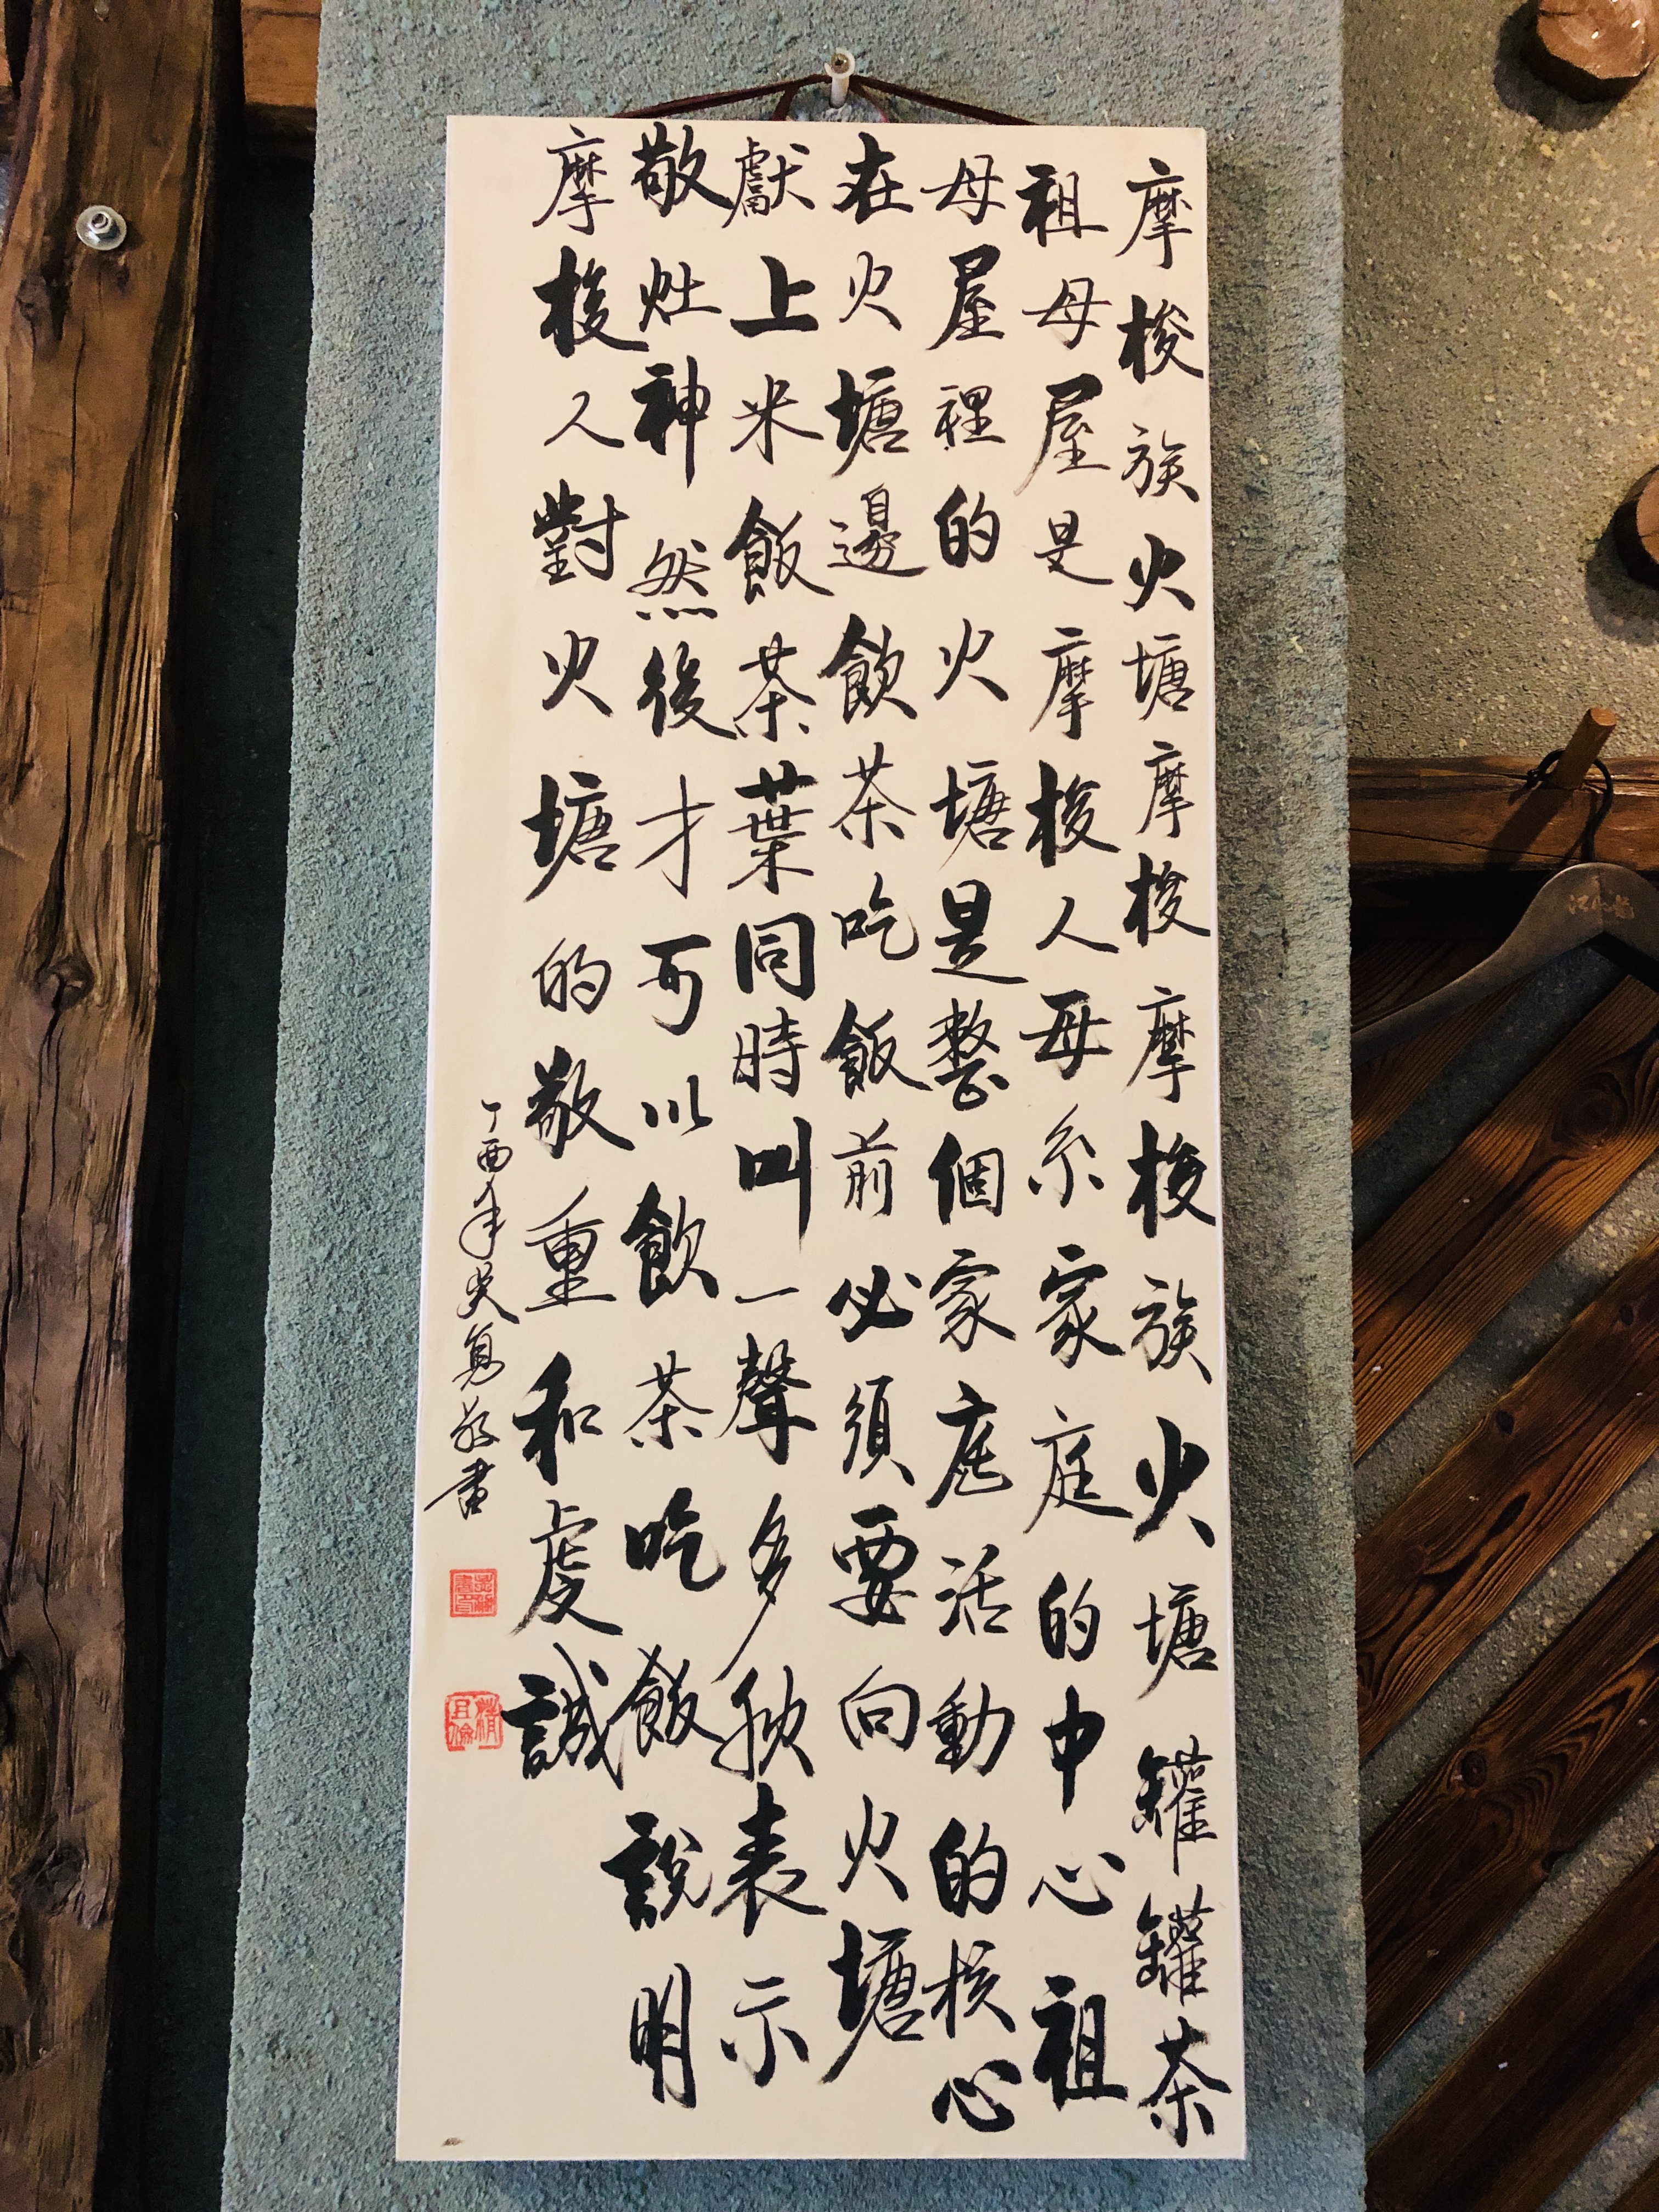 摩梭族火塘摩梭摩梭族火塘罐罐茶
祖母屋是摩梭人母系家庭的中心祖
母屋裡的火塘是整個家庭活動的核心
在火塘邊飲茶吃飯前必須要向火塘
獻上米飯茶葉同時叫一聲多狄表示
敬灶神然後才可以飲茶吃飯說明
摩梭人對火塘的敬重和虔誠
丁酉年
書